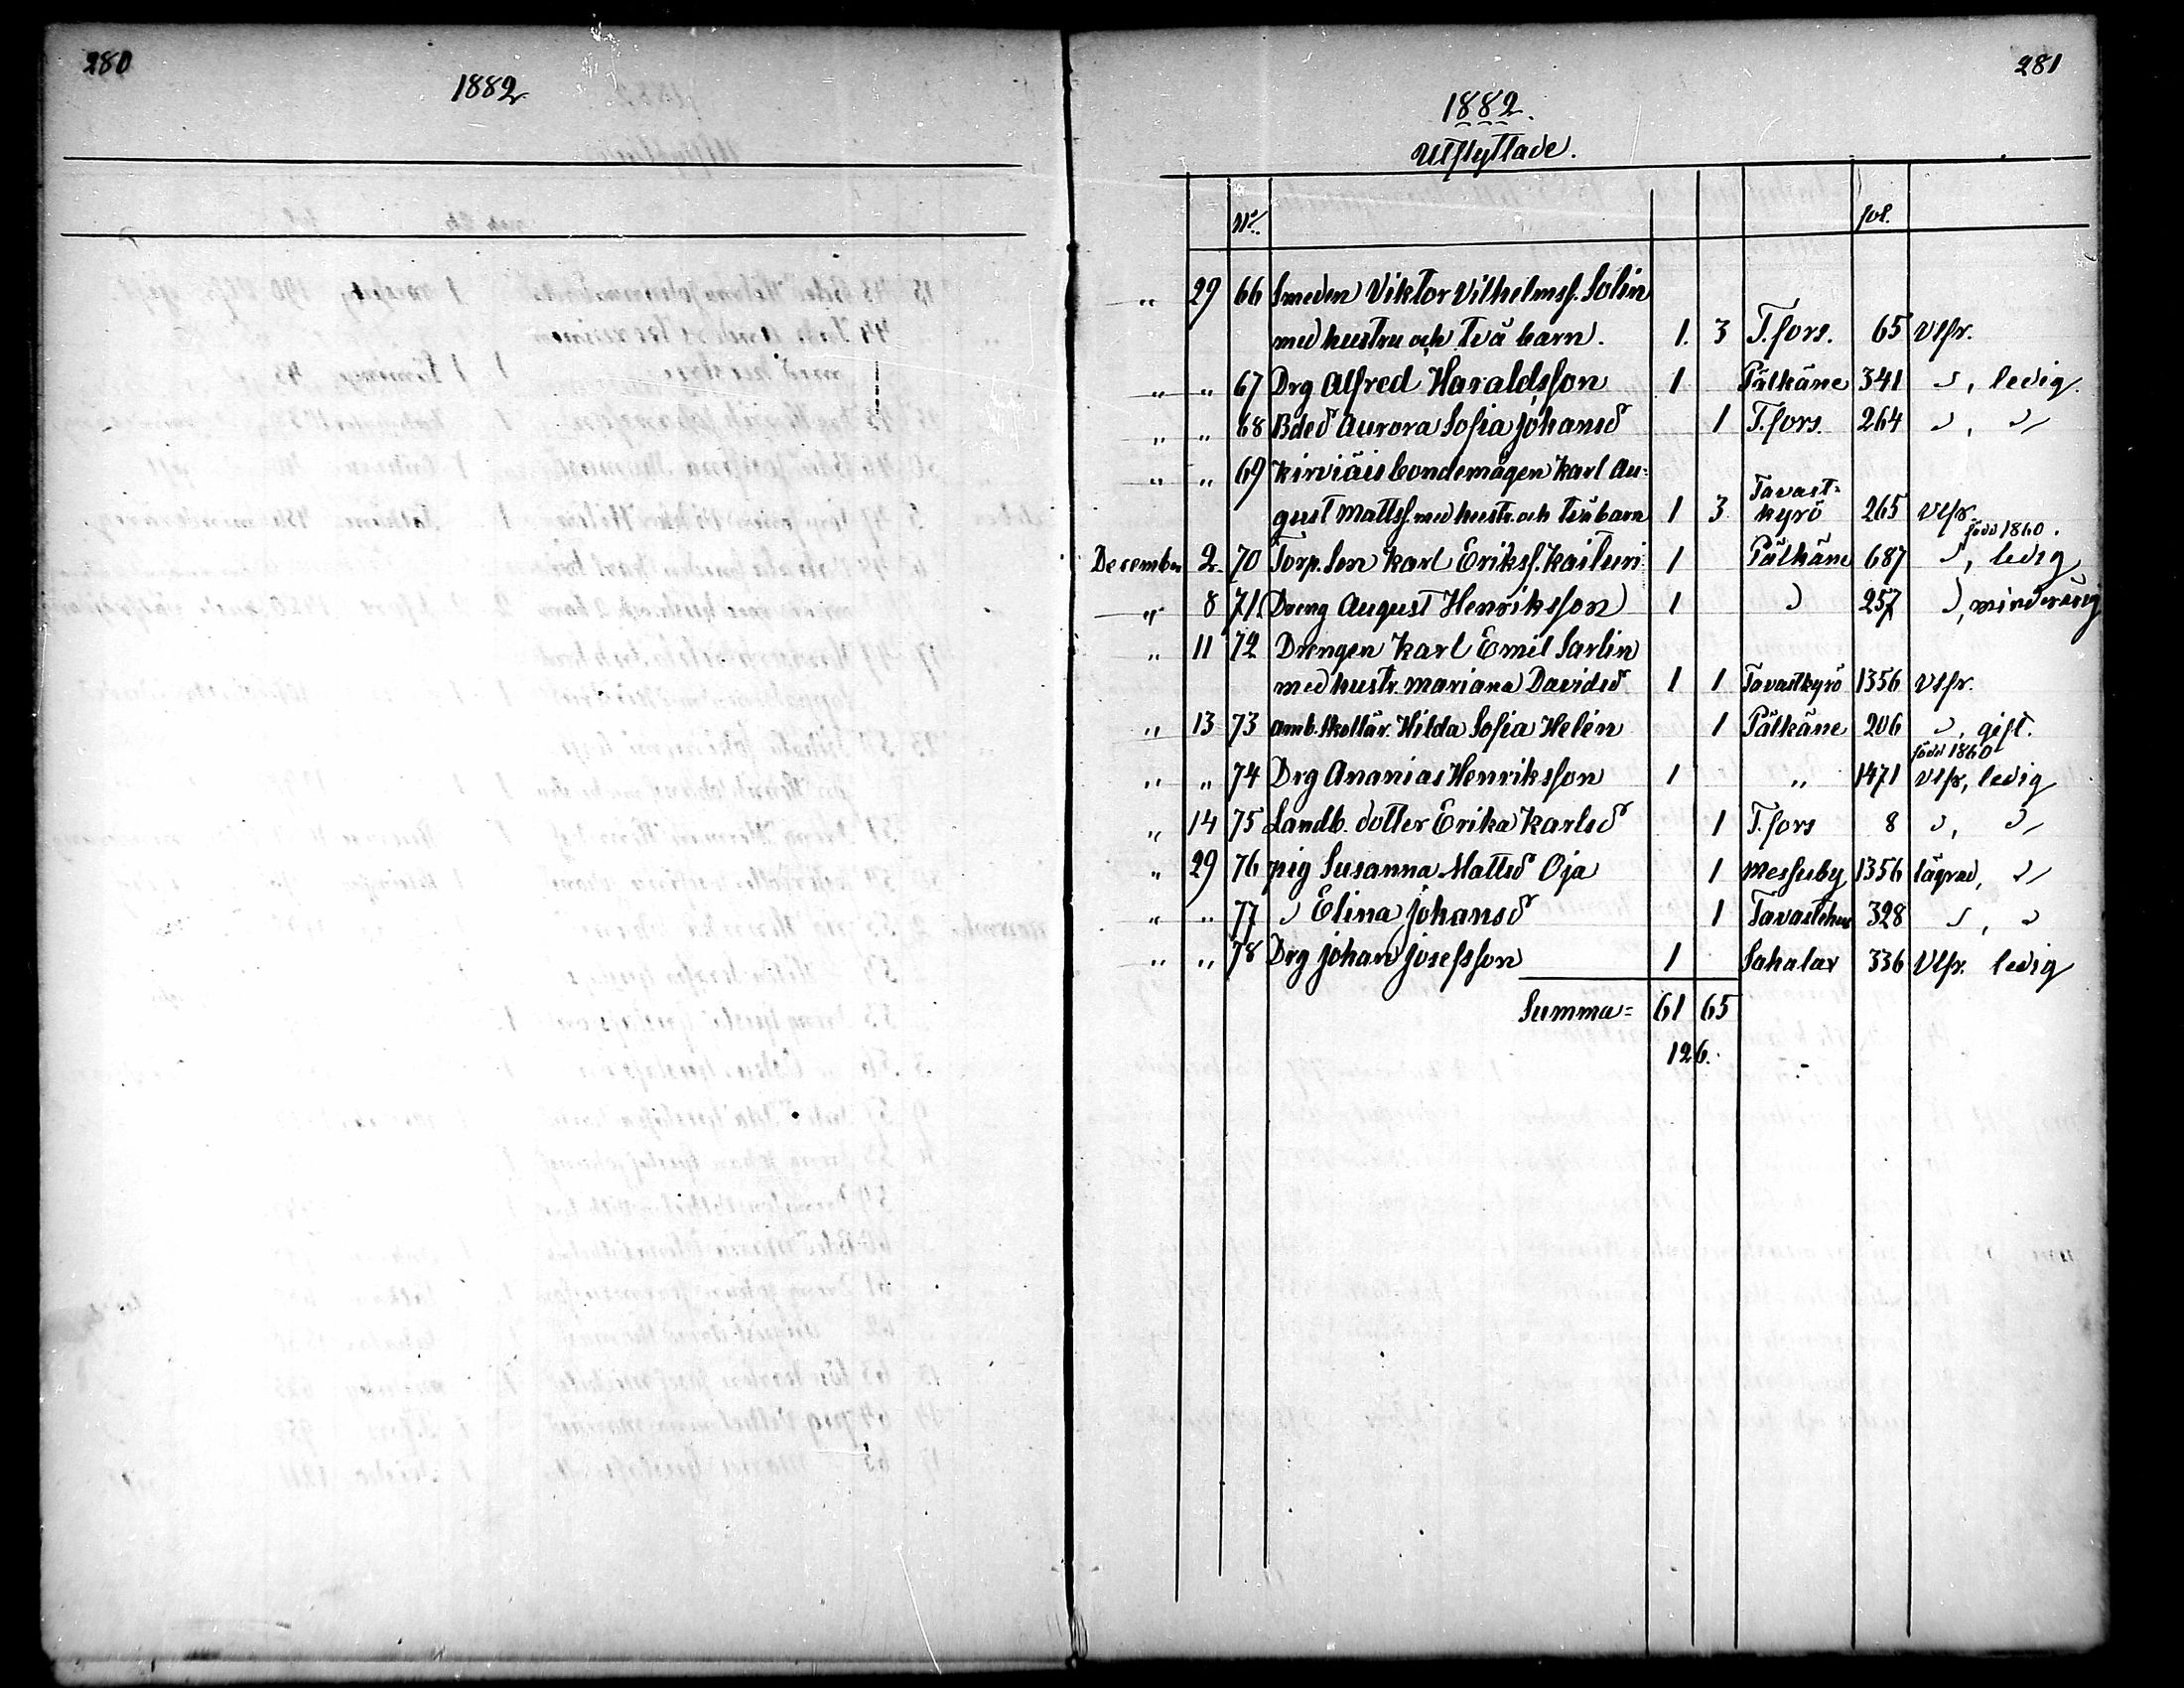 280
1882
281
1882.
Utflyttade.
No. fol.
" 29 66 Smeden Viktor Vilhelmss. Solin
med hustru och två barn. 1. 3 T.fors. 65 Vlfr.
" " 67 Drg Alfred Haraldsson 1 Pälkäne 341 ", ledig.
" " 68 Bded Aurora Sofia Johansd 1 T.fors. 264 ", "
" " 69 Kirviäis bondemågen Karl Au=
gust Mattss. med hustr. och två barn 1 3 Tavast=
kyrö 265 Vlfr.
född 1860.
December 2 70 Torp. Son Karl Erikss. Kaituri 1 Pälkäne 687 ", ledig
" 8 71. Dreng August Henriksson 1 " 257 ", minderårig
" 11 72 Drengen Karl Emil Sarlin
med hustr. Mariana Davidsd 1 1 Tavastkyrö 1356 Vlfr.
" 13 73 Amb. Skollär. Hilda Sofia Helin 1 Pälkäne 206 ", gift.
född 1860
" " 74 Drg Ananias Henriksson 1 " 1471 Vlfr, ledig
" 14 75 Landb. dotter Erika Karlsd 1 T.fors 8 ", "
" 29 76 pig Susanna Mattsd Oja 1 Messuby 1356 lägrad, "
" " 77 " Elina Johansd 1 Tavastehus 328 ", "
" " 78 Drg Johan Josefsson 1 Sahalax 336 Vlfr. ledig
Summa= 61 65
126.